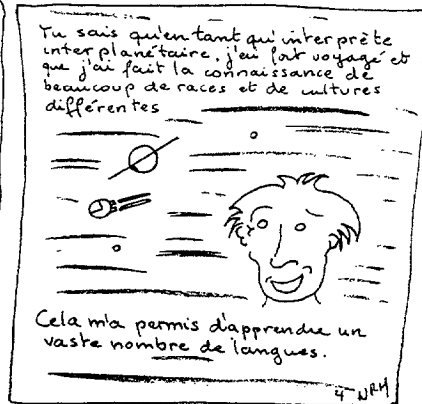 Tu sais qu'en tant qu'interprète
interplanétaire, j'ai fort voyagé et
que j'ai fait la connaissance de
beaucoup de races et de cultures
différentes
Cela m'a permis d'apprendre un
vaste nombre de langues.
4 NRM